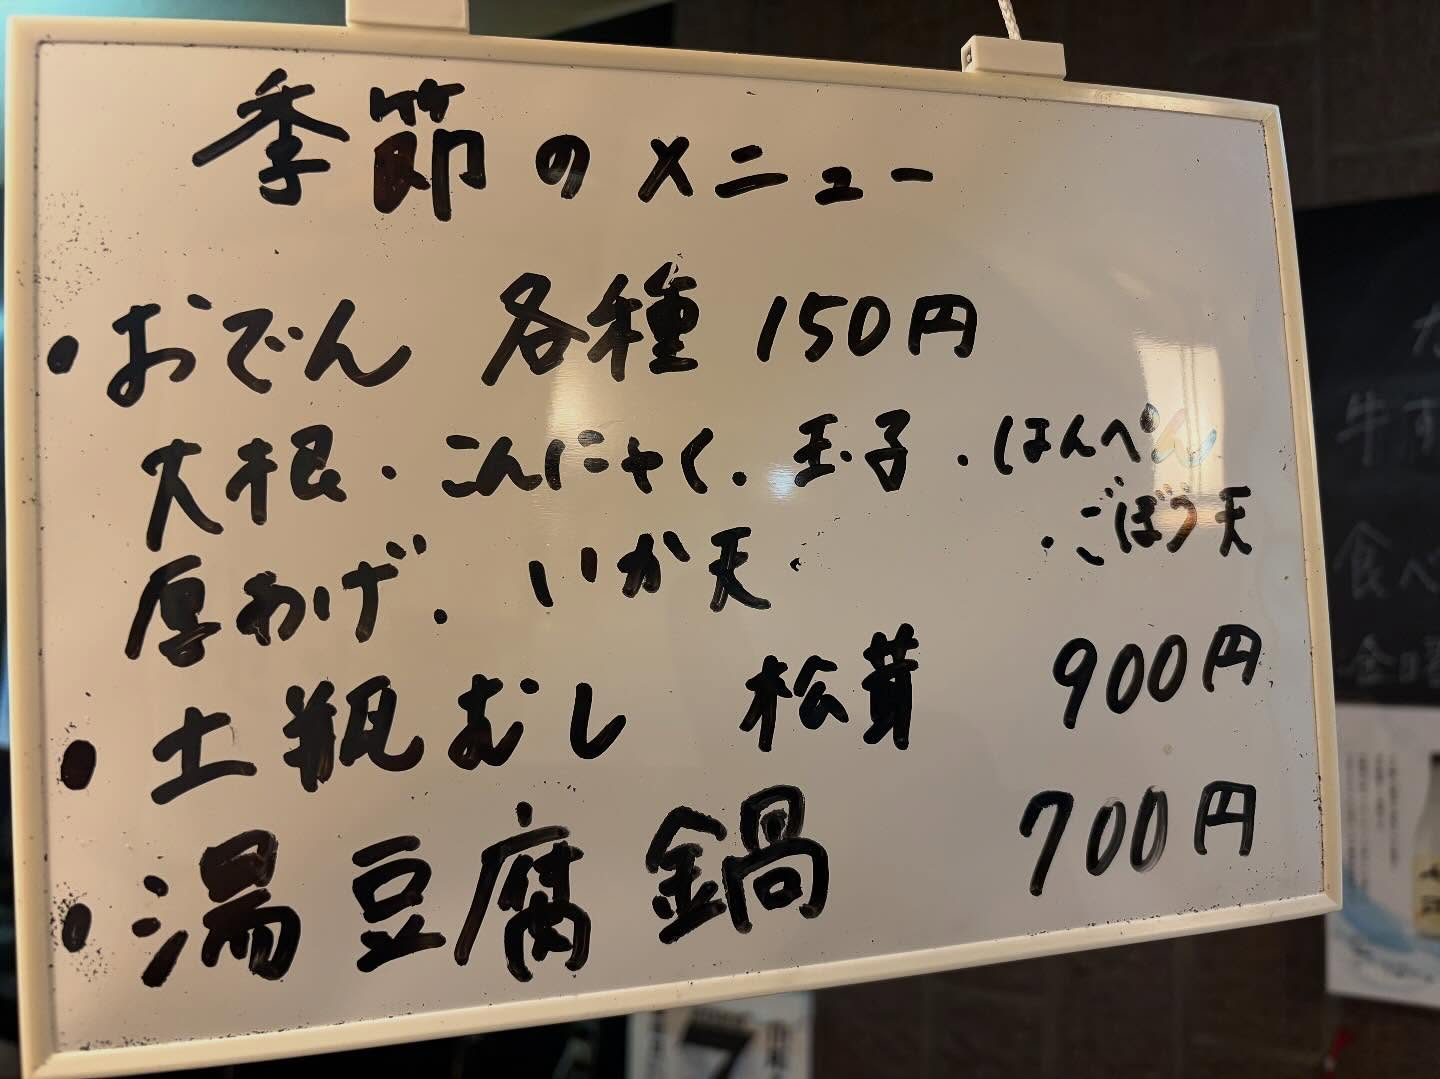 季節のメニュー
・おでん 各種 150円
大根・こんにゃく・玉子・はんぺん
・ごぼう天
厚あげ・いか天
・土瓶むし 松茸 900円
・湯豆腐鍋 700円
牛す
食べ
金曜